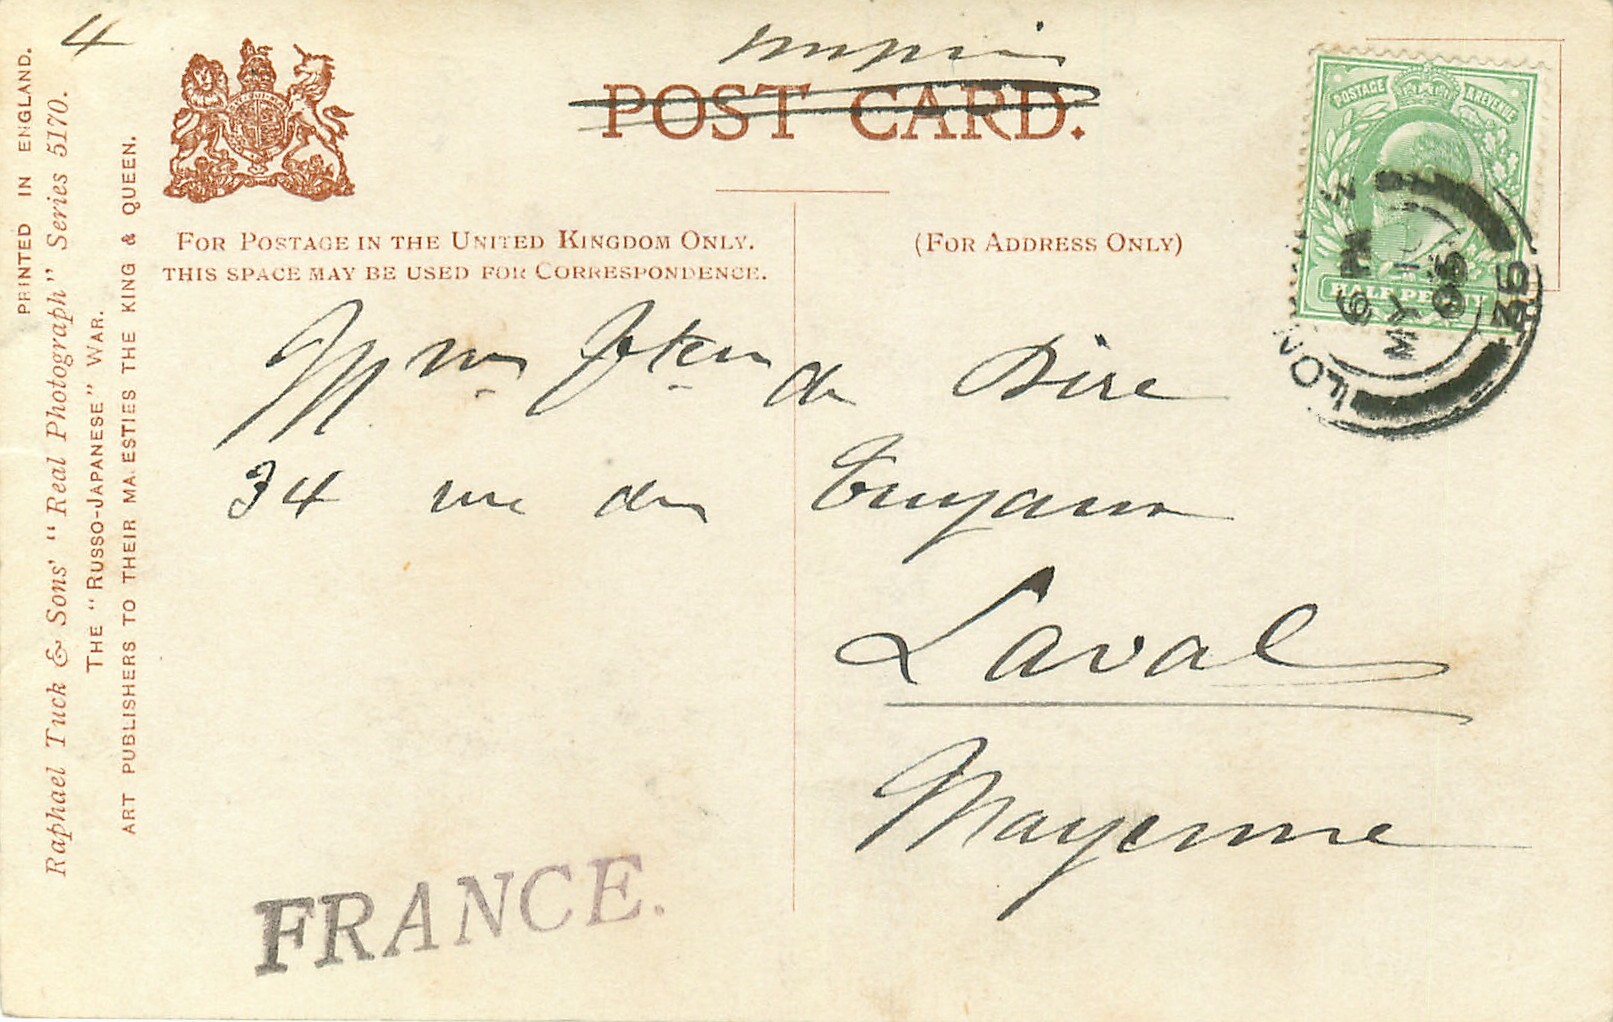 4
POST CARD.
FOR POSTAGE IN THE UNITED KINGDOM ONLY.
THIS SPACE MAY BE USED FOR CORRESPONDENCE.
(FOR ADDRESS ONLY)
POSTAGE & REVENUE
HALF PENNY
LON
6 PM
MY 1
05
35
de Dire
34 rue des
Laval
Mayenne
FRANCE.
PRINTED IN ENGLAND.
Raphael Tuck & Sons' "Real Photograph" Series 5170.
THE "RUSSO-JAPANESE" WAR.
ART PUBLISHERS TO THEIR MAJESTIES THE KING & QUEEN.